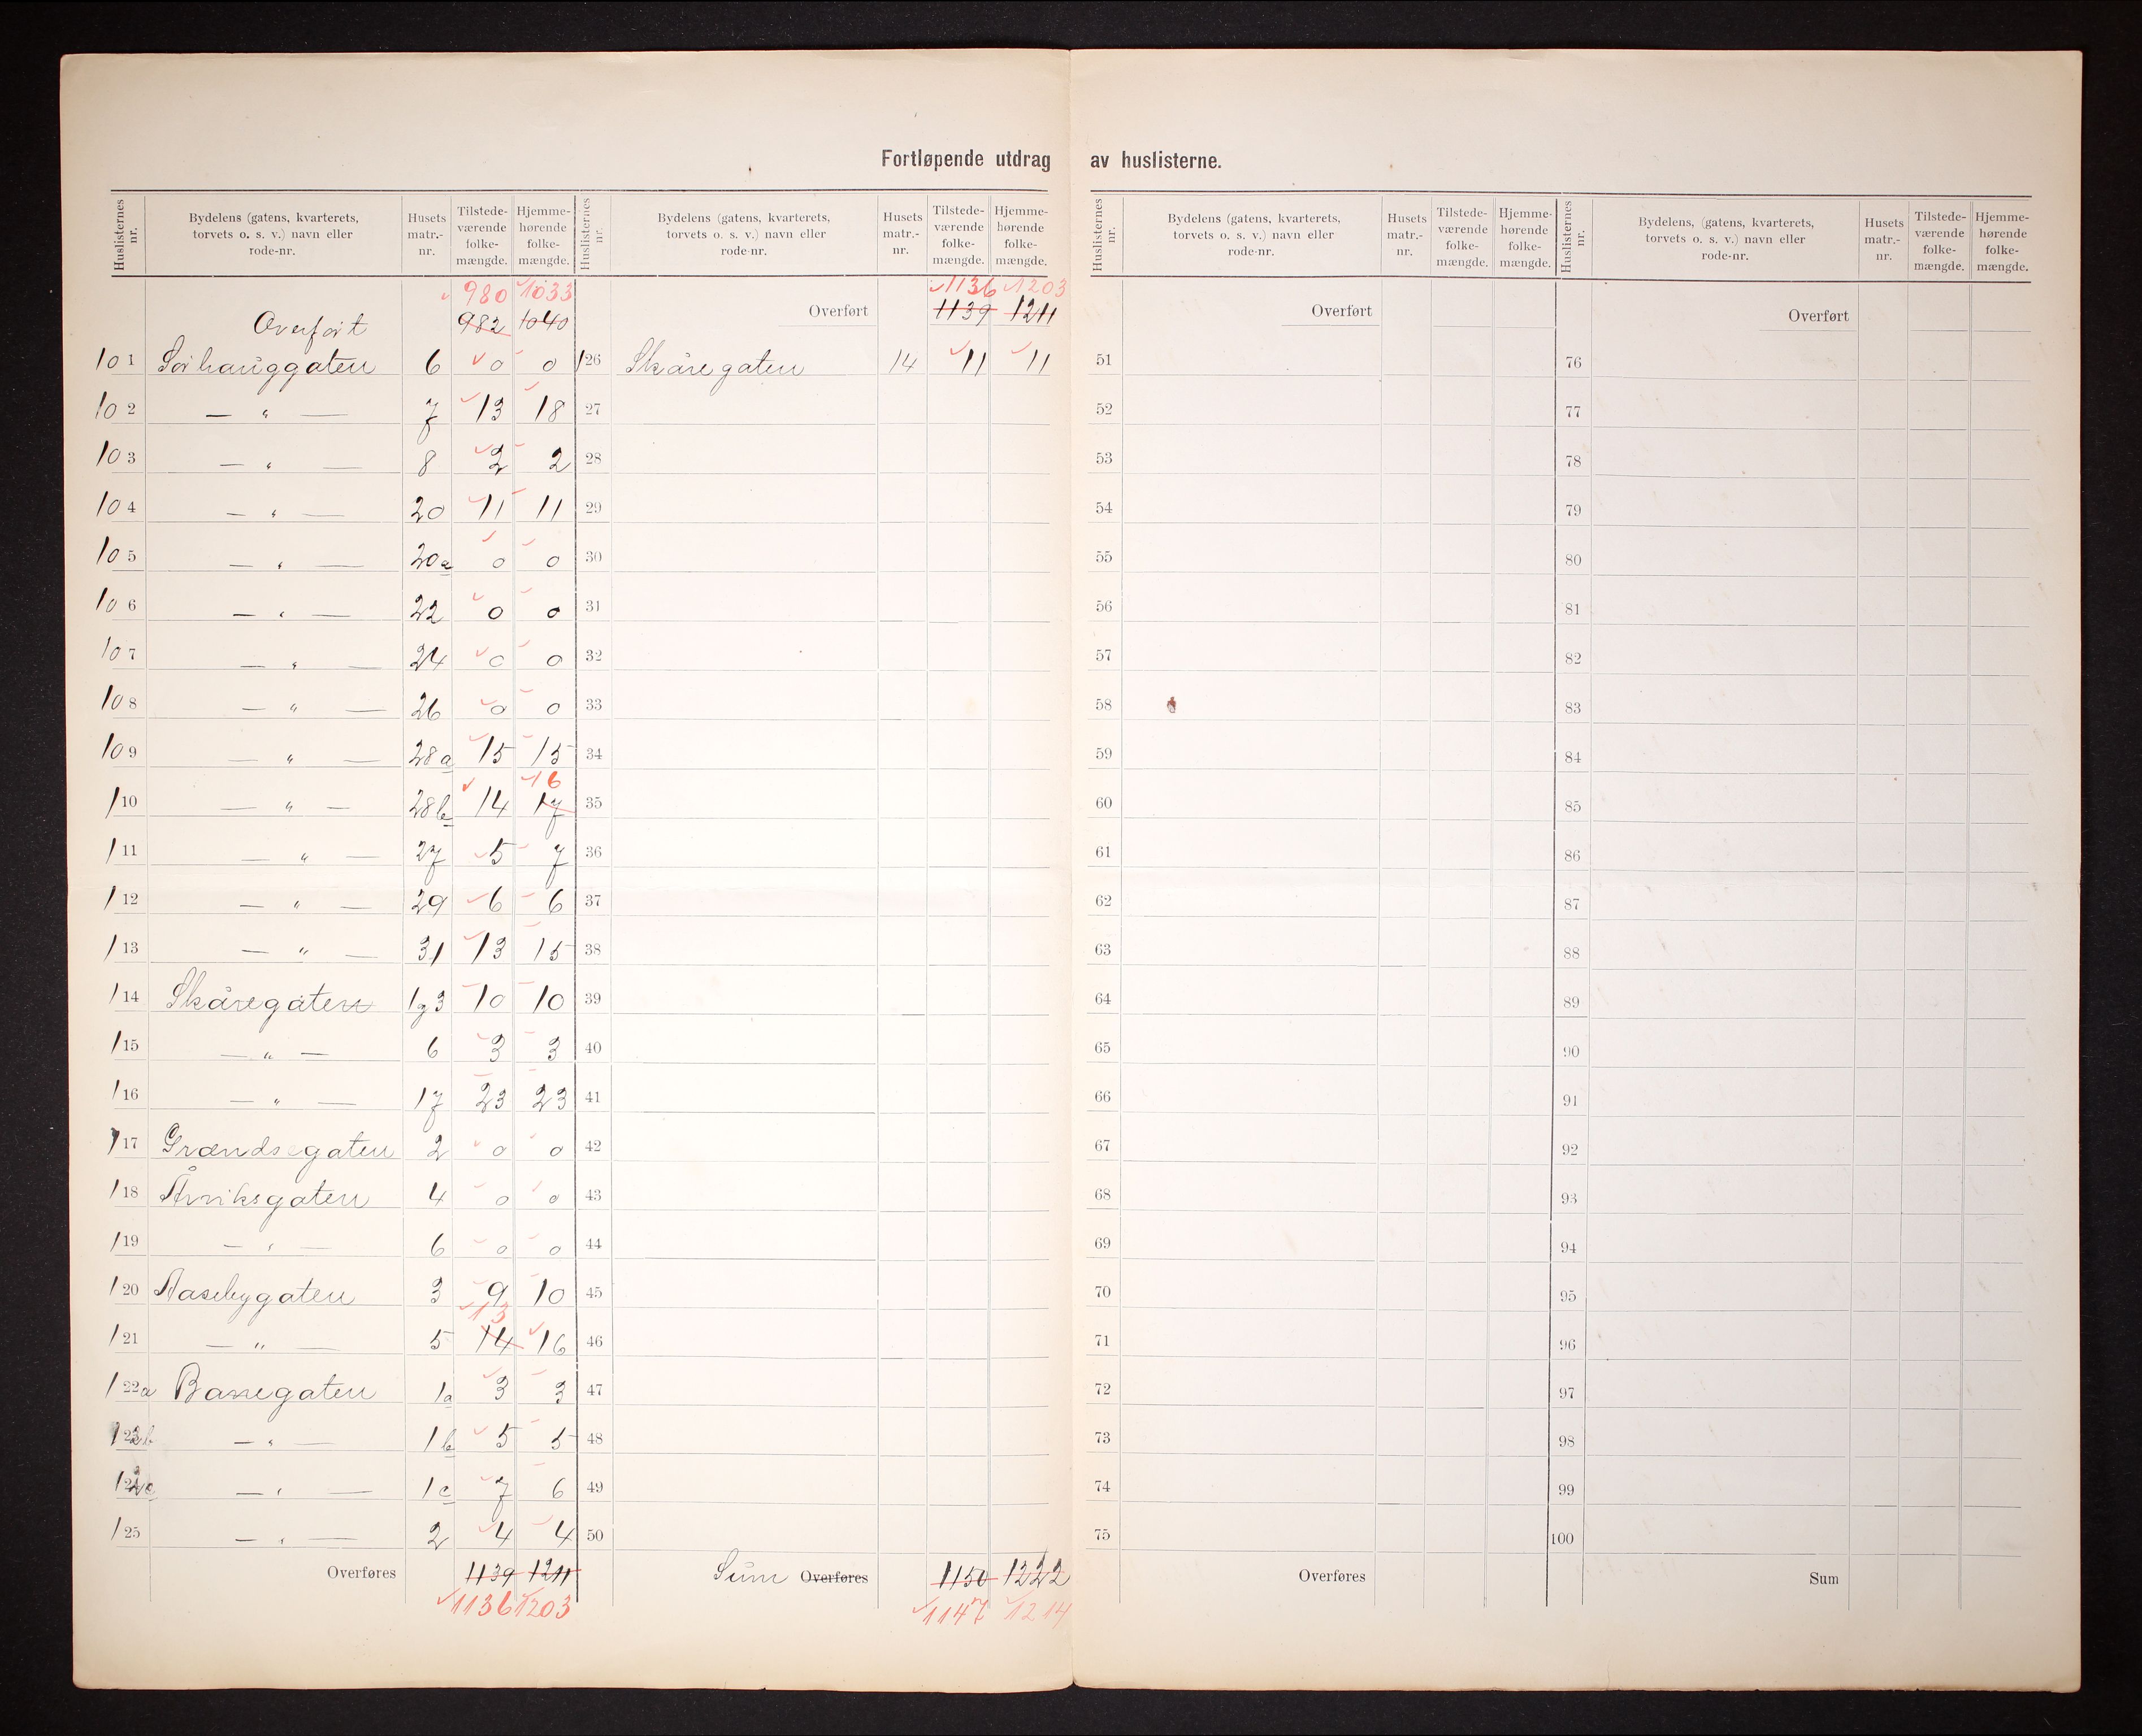 Fortløpende utdrag av huslisterne.
Huslisternes nr. | Bydelens (gatens, kvarterets, torvets o. s. v.) navn eller rode-nr. | Husets matr.-nr. | Tilstedeværende folkemængde. | Hjemmehørende folkemængde.
980 1033
Overført 982 1040
101 Sørhauggaten 6 0 0
102 — " — 7 13 18
103 — " — 8 2 2
104 — " — 20 11 11
105 — " — 20a 0 0
106 — " — 22 0 0
107 — " — 24 0 0
108 — " — 26 0 0
109 — " — 28a 15 15
16
110 — " — 28b 14 17
111 — " — 27 5 7
112 — " — 29 6 6
113 — " — 31 13 15
114 Skåregaten 1g3 10 10
115 — " — 6 3 3
116 — " — 17 23 23
117 Grændsegaten 2 0 0
118 Årviksgaten 4 0 0
119 — " — 6 0 0
120 Aasebygaten 3 9 10
13
121 — " — 5 14 16
122a Bassegaten 1a 3 3
122b — " — 1b 5 5
122c — " — 1c 7 6
125 — " — 2 4 4
Overføres 1139 1211
1136 1203
Huslisternes nr. | Bydelens (gatens, kvarterets, torvets o. s. v.) navn eller rode-nr. | Husets matr.-nr. | Tilstedeværende folkemængde. | Hjemmehørende folkemængde.
1136 1203
Overført 1139 1211
126 Skåregaten 14 11 11
27
28
29
30
31
32
33
34
35
36
37
38
39
40
41
42
43
44
45
46
47
48
49
50
Sum Overføres 1150 1222
1147 1214
Huslisternes nr. | Bydelens (gatens, kvarterets, torvets o. s. v.) navn eller rode-nr. | Husets matr.-nr. | Tilstedeværende folkemængde. | Hjemmehørende folkemængde.
Overført
51
52
53
54
55
56
57
58
59
60
61
62
63
64
65
66
67
68
69
70
71
72
73
74
75
Overføres
Huslisternes nr. | Bydelens, (gatens, kvarterets, torvets o. s. v.) navn eller rode-nr. | Husets matr.-nr. | Tilstedeværende folkemængde. | Hjemmehørende folkemængde.
Overført
76
77
78
79
80
81
82
83
84
85
86
87
88
89
90
91
92
93
94
95
96
97
98
99
100
Sum